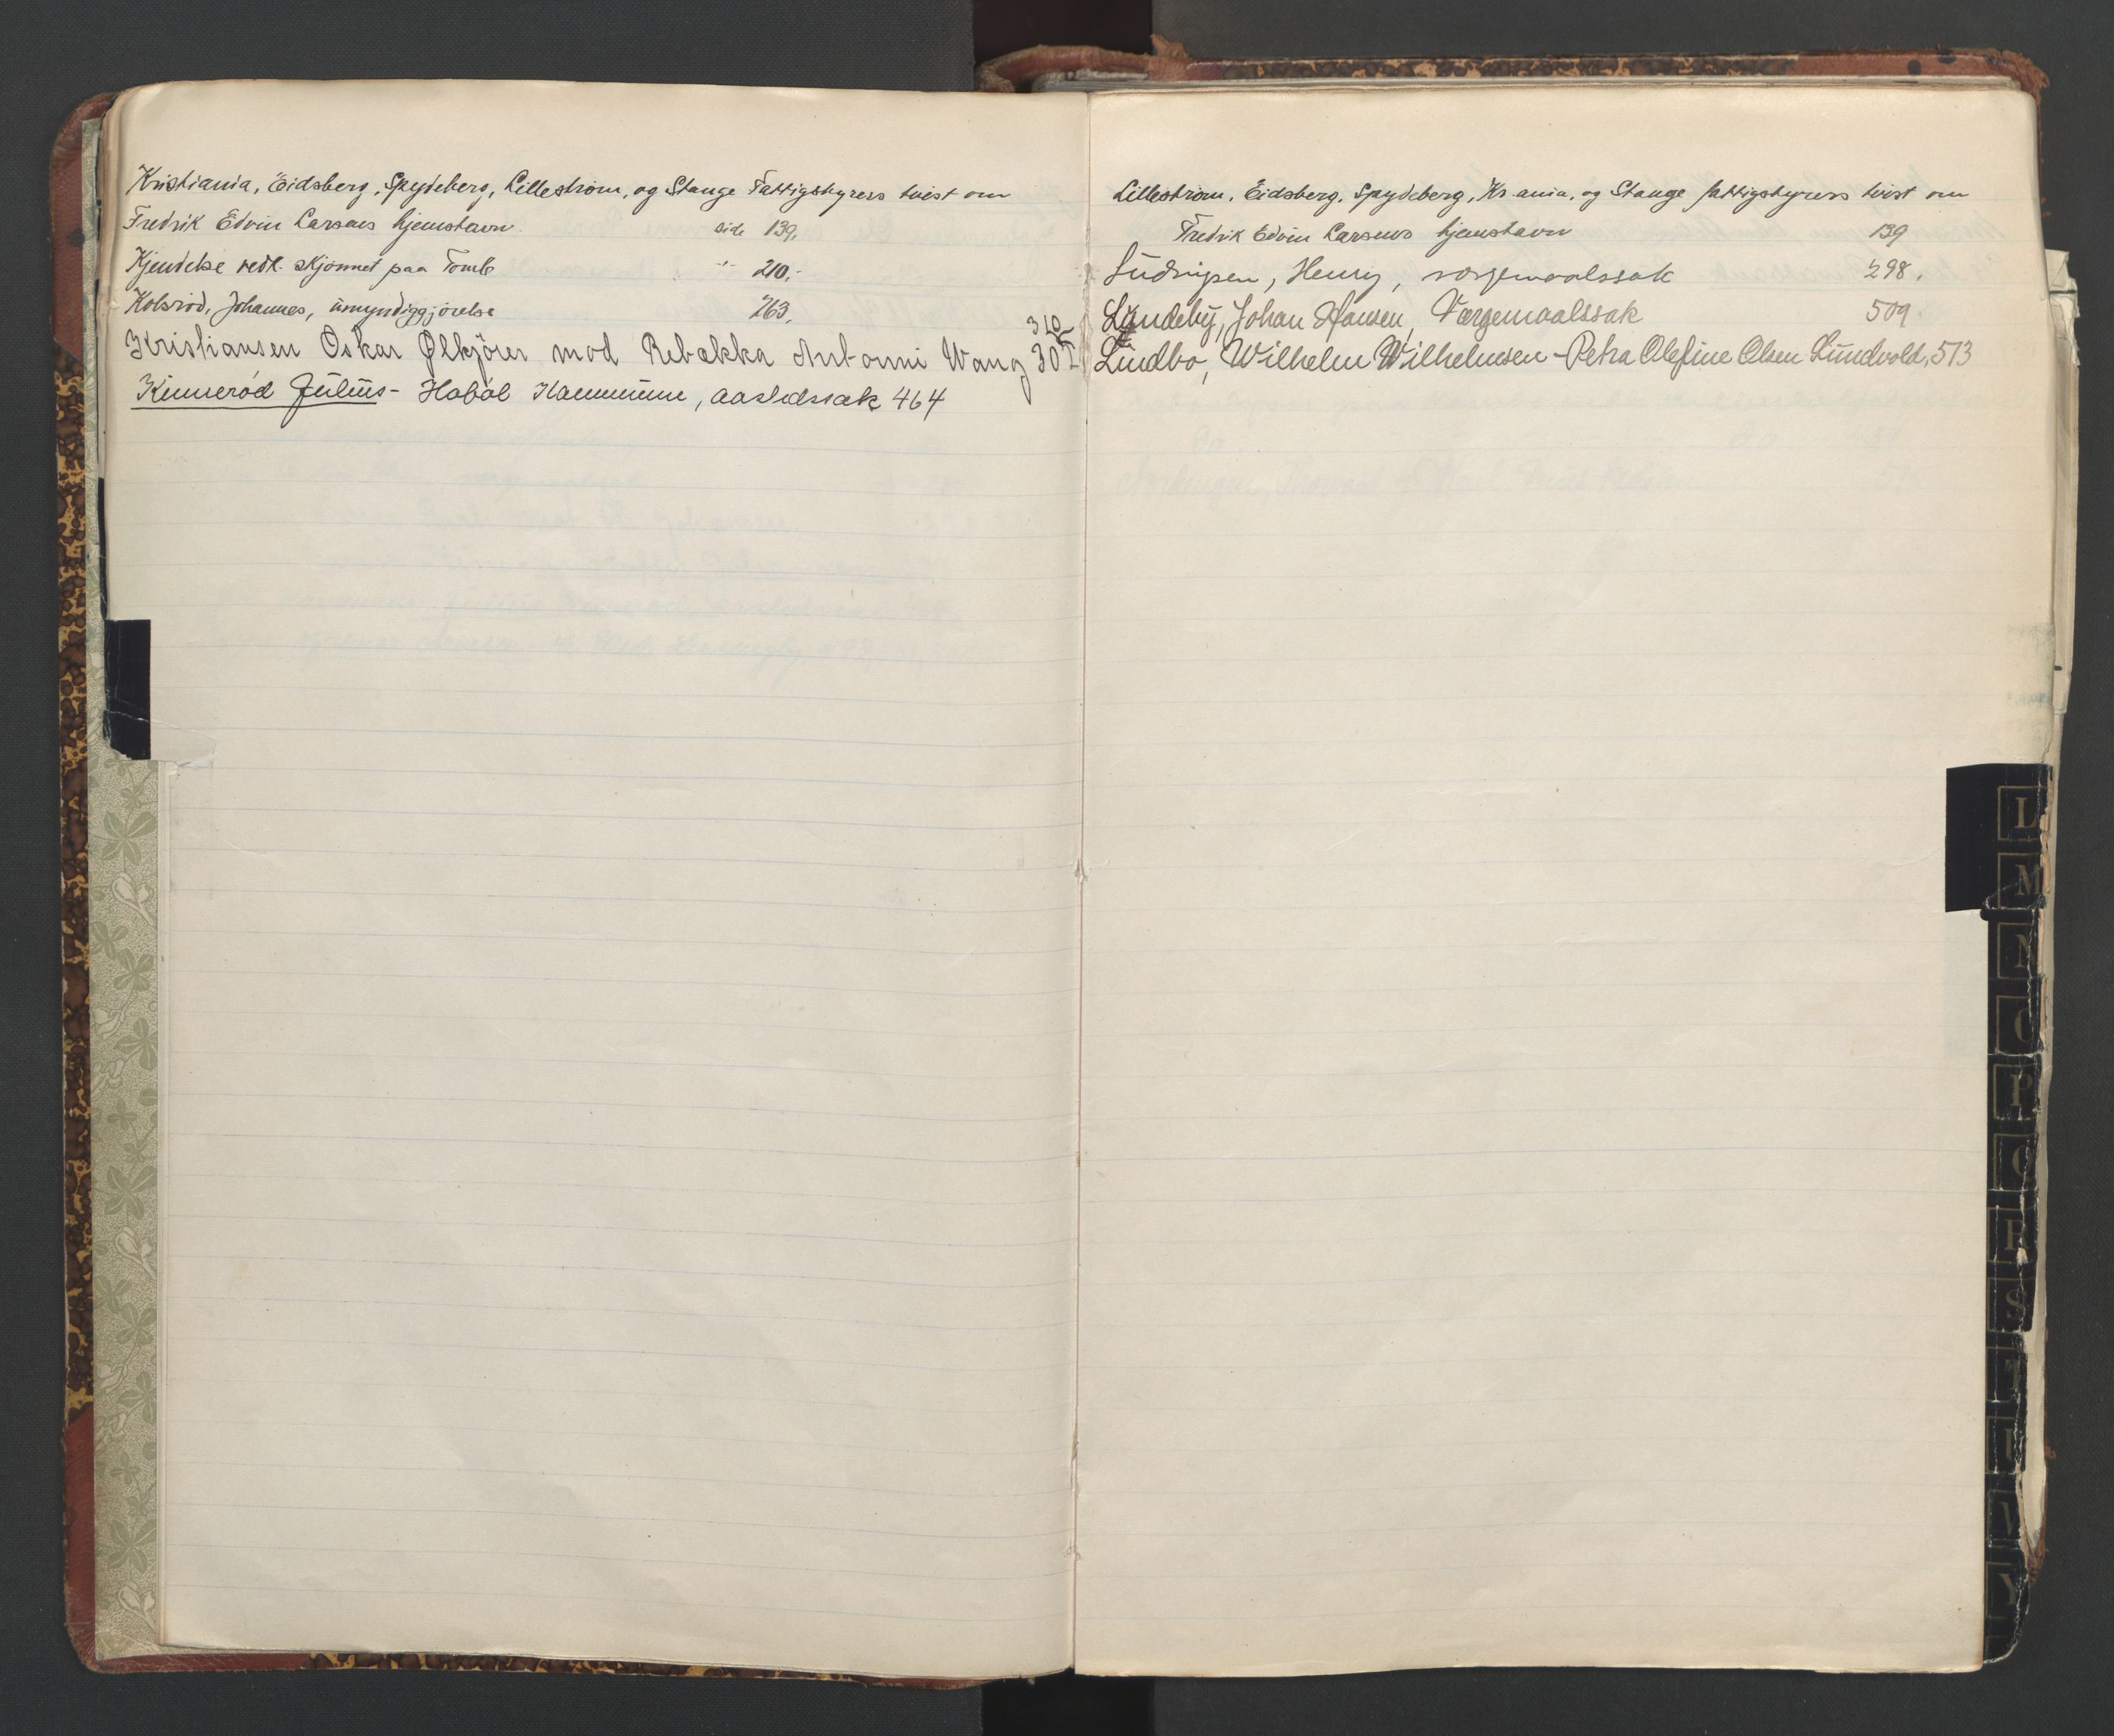 Kristiania, Eidsberg, Spydeberg, Lillestrøm, og Stange Fattigstyrers tvist om
Fredrik Edvin Larsens hjemstavn side 139,
Kjendelse vedk. skjønnet paa Tomb " 210,-
Kolsrød, Johannes, umyndiggjørelse 263,
310
Kristiansen Oskar Ølkjører mod Rebekka Antonni Wang 302
Kinnerød Julius - Hobøl Kommune, aastedssak 464
Lillestrøm, Eidsberg, Spydeberg, Kr.ania, og Stange fattigstyrers tvist om
Fredrik Edvin Larsens hjemstavn 139
Henry, værgemaalssak 298.
Lundeby, Johan Hansen, Værgemaalssak 509.
Lindbo, Wilhelm Wilhelmsen - Petra Olefine Olsen Lundvold, 513
L
M
N
O
P
Q
R
S
T
U
V
Y